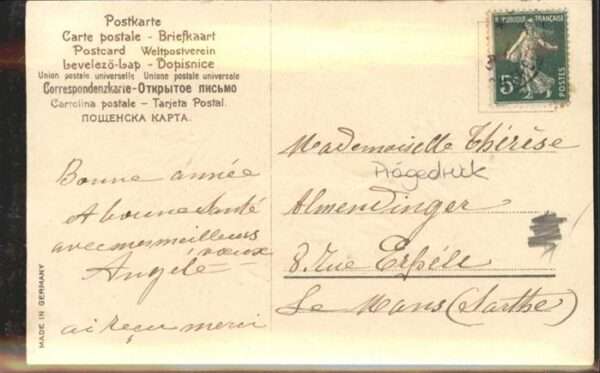 Postkarte
Carte postale - Briefkaart
Postcard Weltpostverein
Levelező-Lap. - Dopisnice
Union postale universelle Unione postale universale
Correspondenzkarte-Открытое письмо
Cartolina postale – Tarjeta Postal.
ПОЩЕНСКА КАРТА.
REPUBLIQUE FRANÇAISE
5
POSTES
Mademoiselle Thérèse
Prägedruck
Almendinger
8. Rue
Le Mans (Sarthe)
Bonne année
A bonne Santé
avec mes meilleurs
vœux
Angèle
ai reçu merci
MADE IN GERMANY